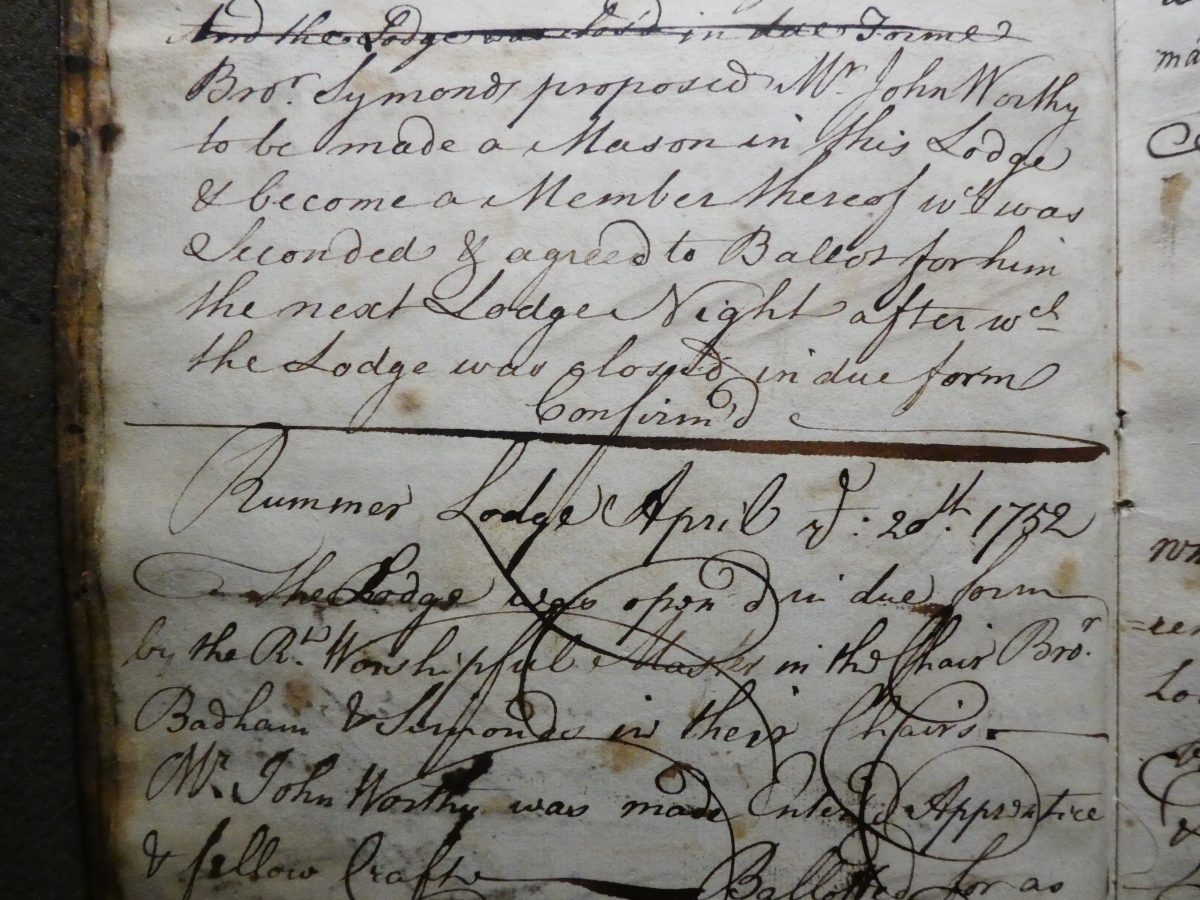 And the Lodge was clos'd in due Forme
Bror. Symonds proposed Mr. John Worthy
to be made a Mason in this Lodge
& become a Member thereof wch was
Seconded & agreed to Ballot for him
the next Lodge Night after wch
the Lodge was closed in due form
Confirm'd
Rummer Lodge April ye: 20th. 1752
The Lodge was open'd in due form
by the Rt. Worshipful Master in the Chair Bror.
Badham & Simonds in their Chairs.
Mr. John Worthy was made Enter'd Apprentice
& fellow Craft Ballotted for as